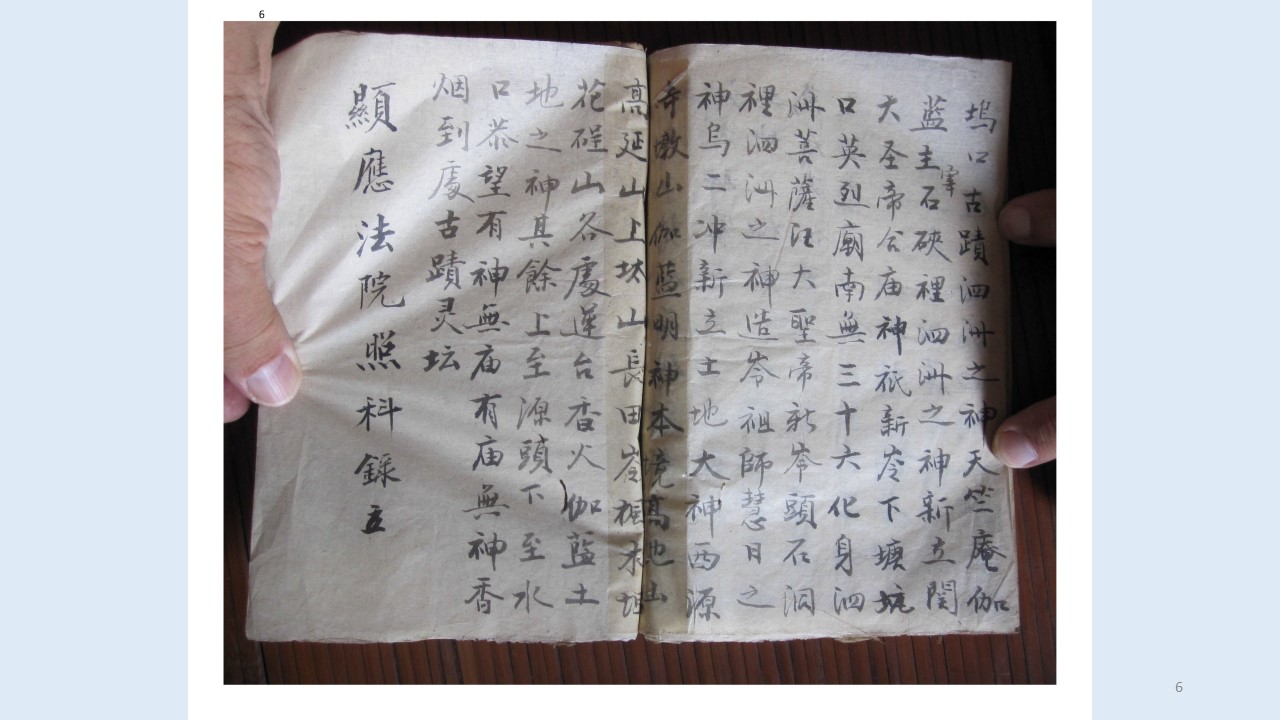 6
塢口古蹟泗洲之神天竺庵伽
藍主宰石硤裡泗洲之神新立関
大圣帝公庙神祇新岺下塘坑
口英烈廟南無三十六化身泗
洲菩薩汪大聖帝新岺頭石洞
裡泗洲之神造岺祖師慧日之
神烏二冲新立士地大神西源
寺墩山伽藍明神本境高地山
高延山上坎山長田岺楓木坦
花磘山各處蓮台香火伽藍土
地之神其餘上至源頭下至水
口恭望有神無庙有庙無神香
烟到處古蹟灵坛
顯應法院照科錄立
6